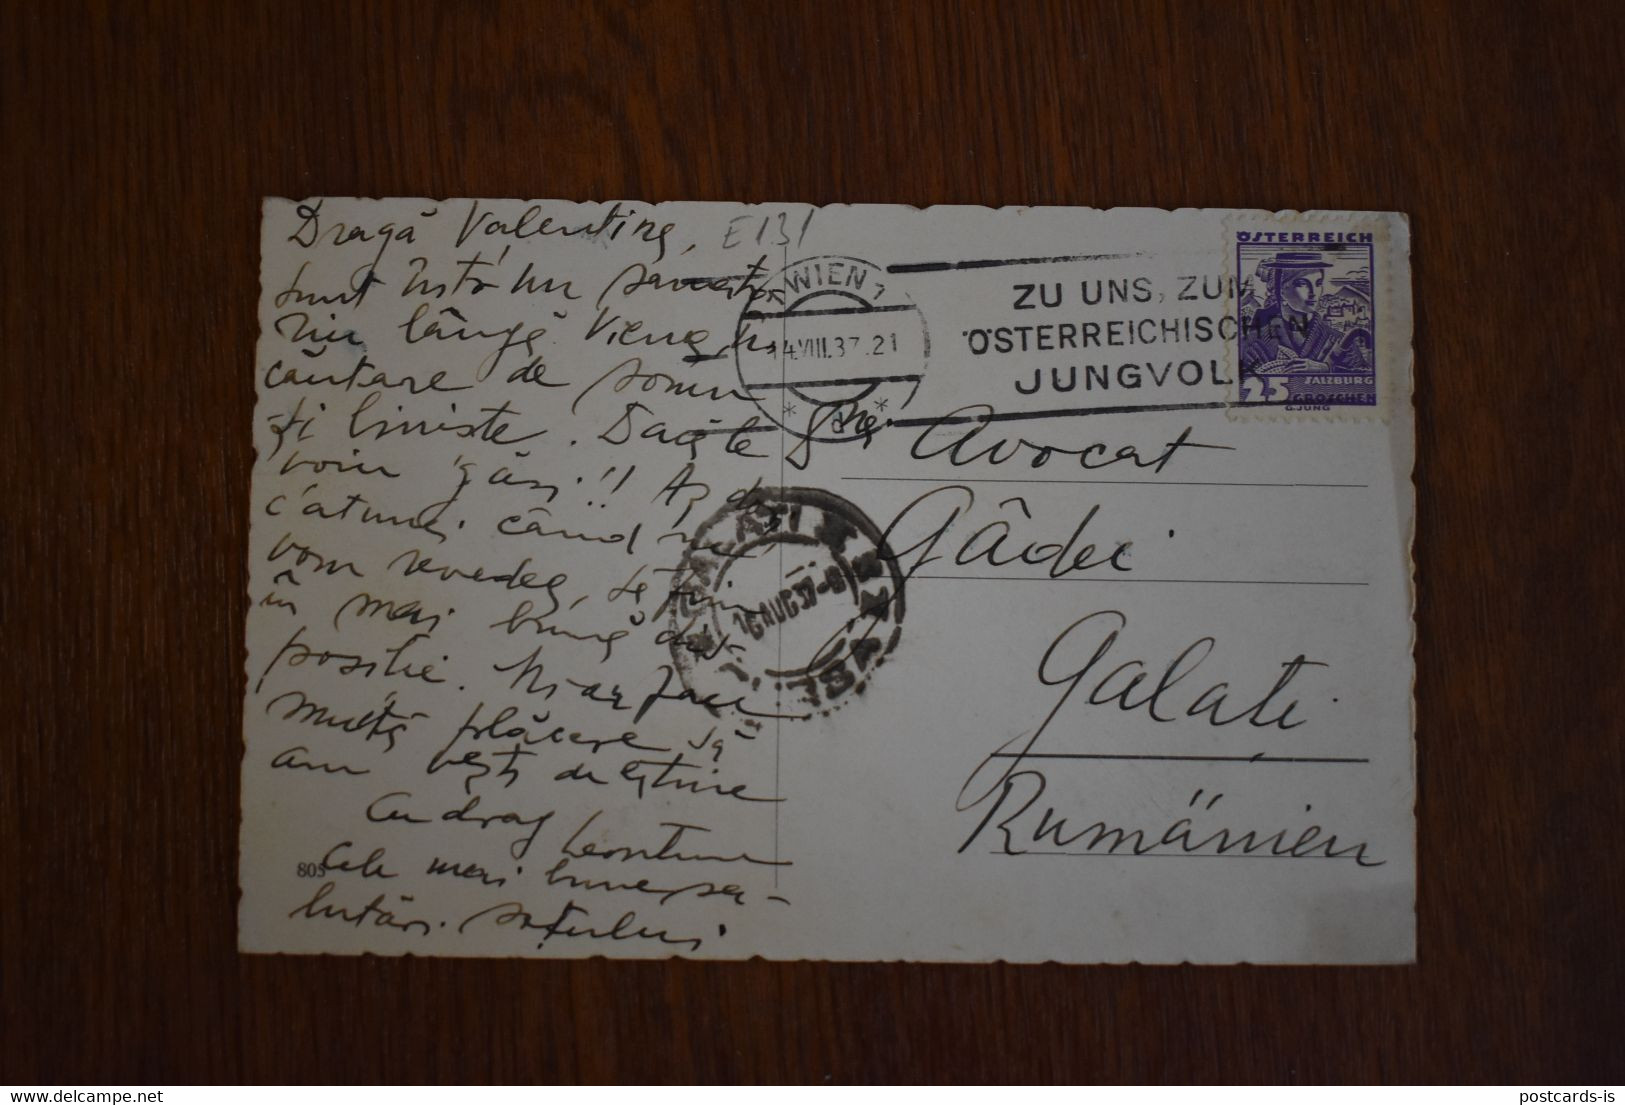 Dragă Valentine, E131
sunt într'un sanator
riu lângă Viena, în
căutare de somn
și liniște. Dacă le
voiu găsi!! Aș dori
c'atunci când ne
vom revedea, să fim
în mai bună dis-
poziție. Mi-ar face
multă plăcere să
am vești dela tine
Cu drag Leontine
805
Cele mai bune sa-
lutări soțului
WIEN 1
14.VIII.37.21
ZU UNS, ZUM
ÖSTERREICHISCHEN
JUNGVOLK
ÖSTERREICH
25 SALZBURG
GROSCHEN
G.JUNG
Dnei Avocat
Gâdei
Galați
Rumänien
GALATI
16 AUG 37
postcards-is
delcampe.net